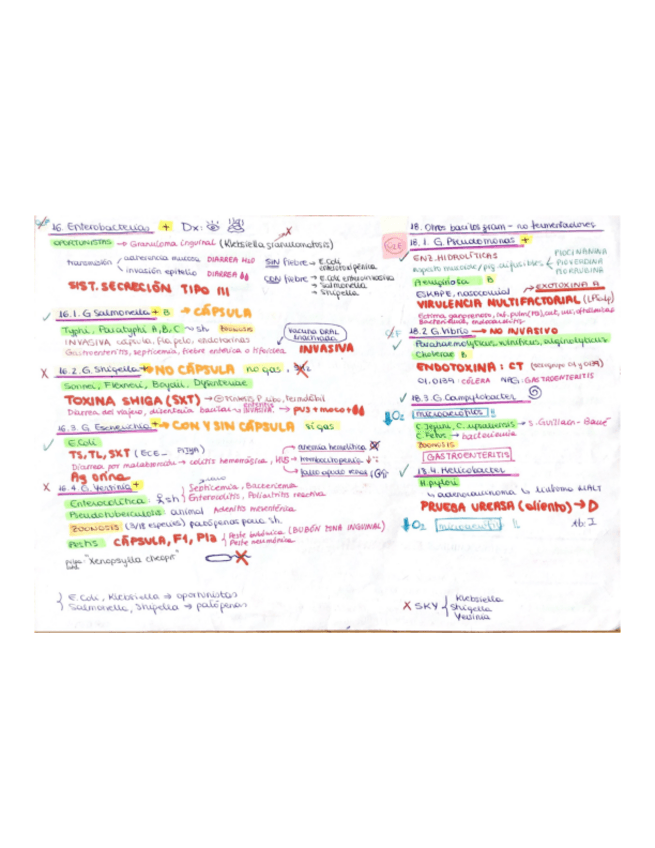 16. Enterobacterias + Dx:
OPORTUNISTAS → Granuloma inguinal (Klebsiella granulomatosis)
adherencia mucosa DIARREA H2O
invasión epitelio DIARREA
SIN fiebre → E. Coli
CON fiebre → E. coli enteroinvasiva
→ Salmonella
→ Shigella
SIST. SECRECIÓN TIPO III
16.1. G Salmonella + B → CÁPSULA
Typhi, Paratyphi A, B, C → sh ZOONOSIS
INVASIVA cápsula, flo, pelo, endotoxinas
Gastroenteritis, septicemia, fiebre entérica o tifoidea
Vacuna ORAL inactivada
INVASIVA
16.2. G. Shigella + → NO CÁPSULA no gas
Sonnei, Flexneri, Boydii, Dysenteriae
TOXINA SHIGA (SXT) →
Diarrea del viajero, disentería bacilar → INVASIVA → pus + moco +
16.3. G. Escherichia + → CON Y SIN CÁPSULA sí gas
E. Coli
TS, TL, SXT
→ colitis hemorrágica, HUS
→ anemia hemolítica
→ trombocitopenia
→ fallo agudo renal
Ag orina
16.4. G. Yersinia +
Enterocolítica: sh
Septicemia, Bacteriemia
Enterocolitis, Poliartritis reactiva
Pseudotuberculosis: animal Adenitis mesentérica
ZOONOSIS patógenos para sh.
Pestis CÁPSULA, F1, Pla
Peste bubónica (BUBÓN ZONA INGUINAL)
Peste neumónica
"Xenopsylla cheopis"
E. Coli, Klebsiella → oportunistas
Salmonella, Shigella → patógenas
18. Otros bacilos gram - no fermentadores
18.1. G. Pseudomonas +
ENZ. HIDROLÍTICAS
PIOCIANINA
PIOVERDINA
PIORRUBINA
Aeruginosa B
EXOTOXINA A
ESKAPE, nosocomial
VIRULENCIA MULTIFACTORIAL
18.2. G. Vibrio → NO INVASIVO
Parahaemolyticus, vulnificus, alginolyticus
Cholerae B
ENDOTOXINA: CT (serogrupo O1 y O139)
O1, O139: CÓLERA NAG: GASTROENTERITIS
18.3. G. Campylobacter
O2 microaerófilos
C. Jejuni, C. upsaliensis → S. Guillain-Barré
C. Fetus → bacteriemia
ZOONOSIS
GASTROENTERITIS
18.4. Helicobacter
H. pylori
↳ adenocarcinoma ↳ linfoma MALT
PRUEBA UREASA (aliento) → D
O2
Ab: I
X SKY
Klebsiella
Shigella
Yersinia